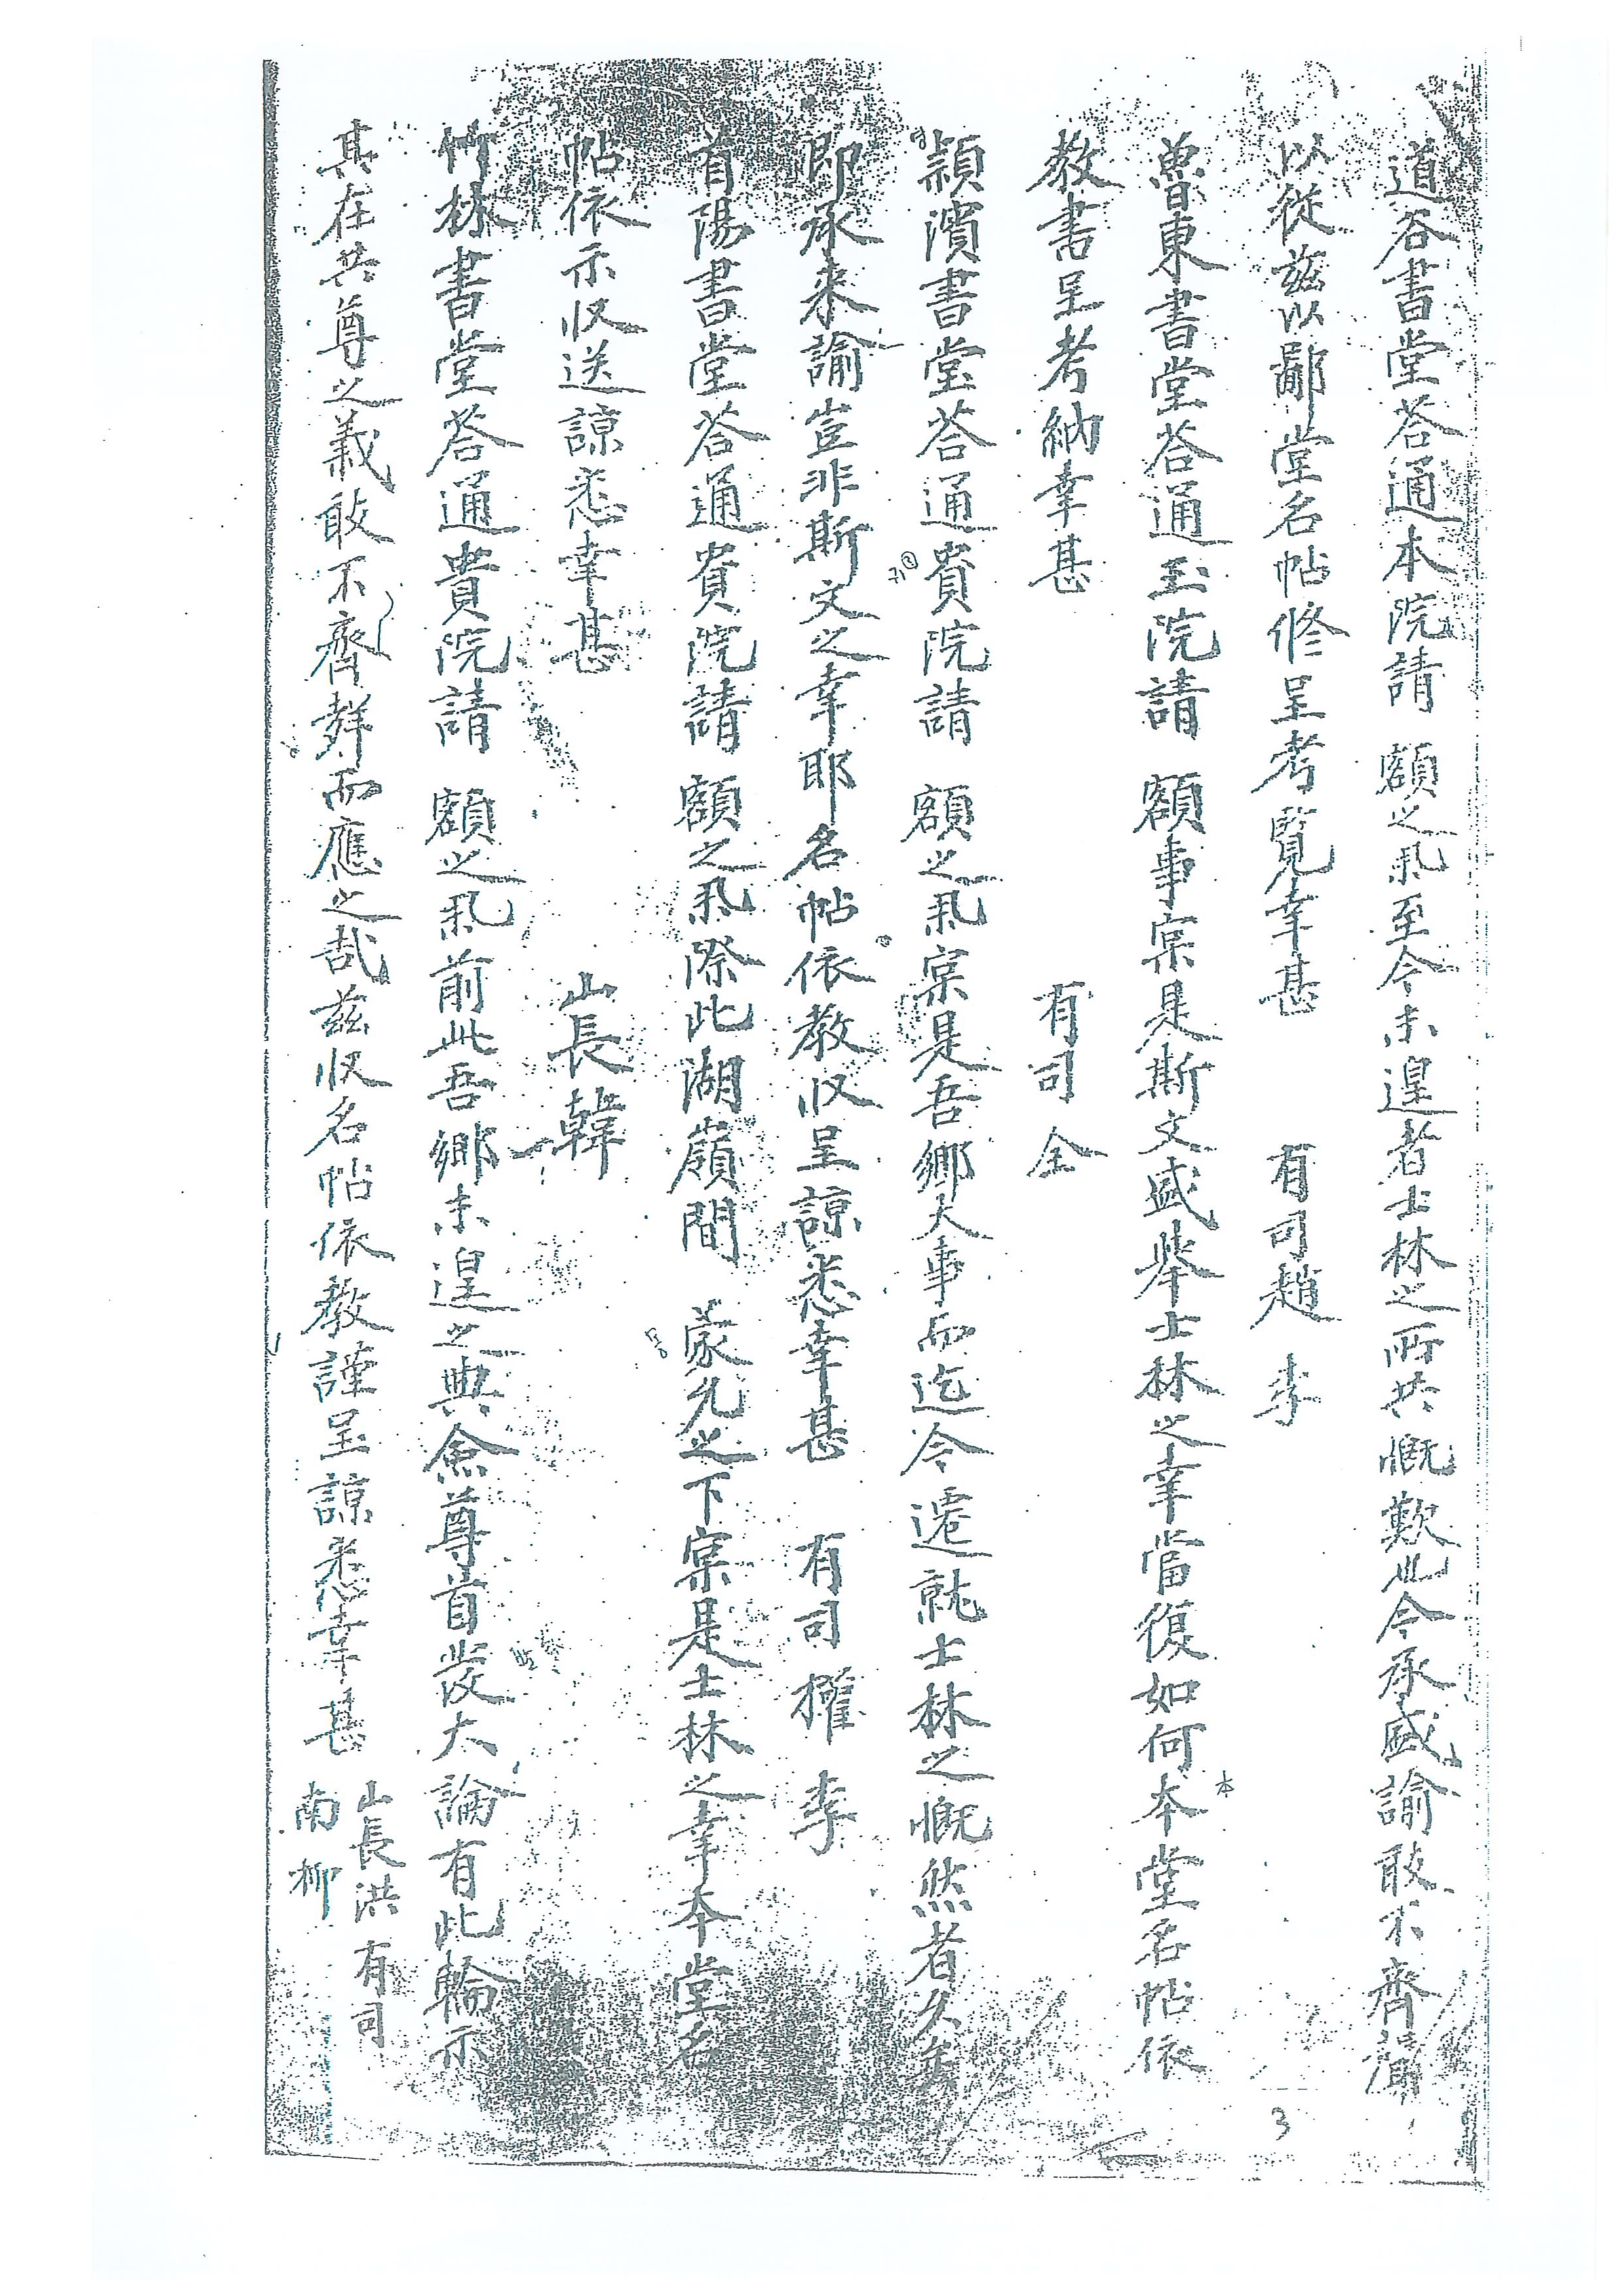 道谷書堂荅通本院請 額之㐲至今未遑者士林之所共慨歎此今承盛諭敢不齊聲
以從茲以鄙堂名帖修呈考覽幸甚 有司趙 李
魯東書堂荅通玉院請 額事寔是斯文盛擧士林之幸當復如何本堂名帖依
本
教書呈考納幸甚 有司 全
潁濱書堂荅通貴院請 額之㐲寔是吾鄉大事而迄今遷就士林之慨然者久矣
영
귀
即承來諭豈非斯文之幸耶名帖依教収呈諒悉幸甚 有司 權 李
首陽書堂荅通貴院請 額之㐲際此湖嶺間 蒙允之下寔是士林之幸本堂名
몽
帖依示収送諒悉幸甚 山長韓
竹林書堂荅通貴院請 額之㐲前此吾鄉未遑之典僉尊首發大論有此輪示
其在共尊之義敢不齊群而應之哉茲収名帖依教謹呈諒悉幸甚 山長洪 有司
南 柳
3